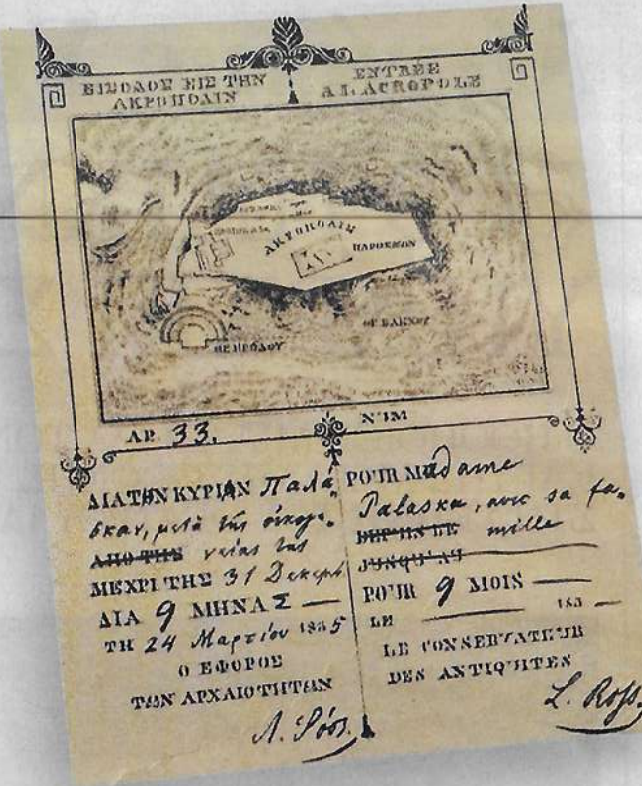 ΕΙΣΟΔΟΣ ΕΙΣ ΤΗΝ
ΑΚΡΟΠΟΛΙΝ
ENTRÉE
A L ACROPOLE
ΑΚΡΟΠΟΛΙΣ
ΠΑΡΘΕΝΩΝ
ΘΕ ΒΑΚΧΟΥ
ΘΕ ΗΡΩΔΟΥ
ΑΡ 33.
ΔΙΑ ΤΗΝ ΚΥΡΙΑΝ Παλά-
σκαν, μετὰ τῆς οἰκογε-
ΑΠΟ ΤΗΣ νείας της
ΜΕΧΡΙ ΤΗΣ 31 Δεκεμβ
ΔΙΑ 9 ΜΗΝΑΣ —
ΤΗ 24 Μαρτίου 1835
Ο ΕΦΟΡΟΣ
ΤΩΝ ΑΡΧΑΙΟΤΗΤΩΝ
Λ. Ῥόσ.
POUR Madame
Palaska, avec sa fa-
DEPUIS LE mille
JUSQU'AU
POUR 9 MOIS —
LE — 183 —
LE CONSERVATEUR
DES ANTIQUITES
L. Roſs.